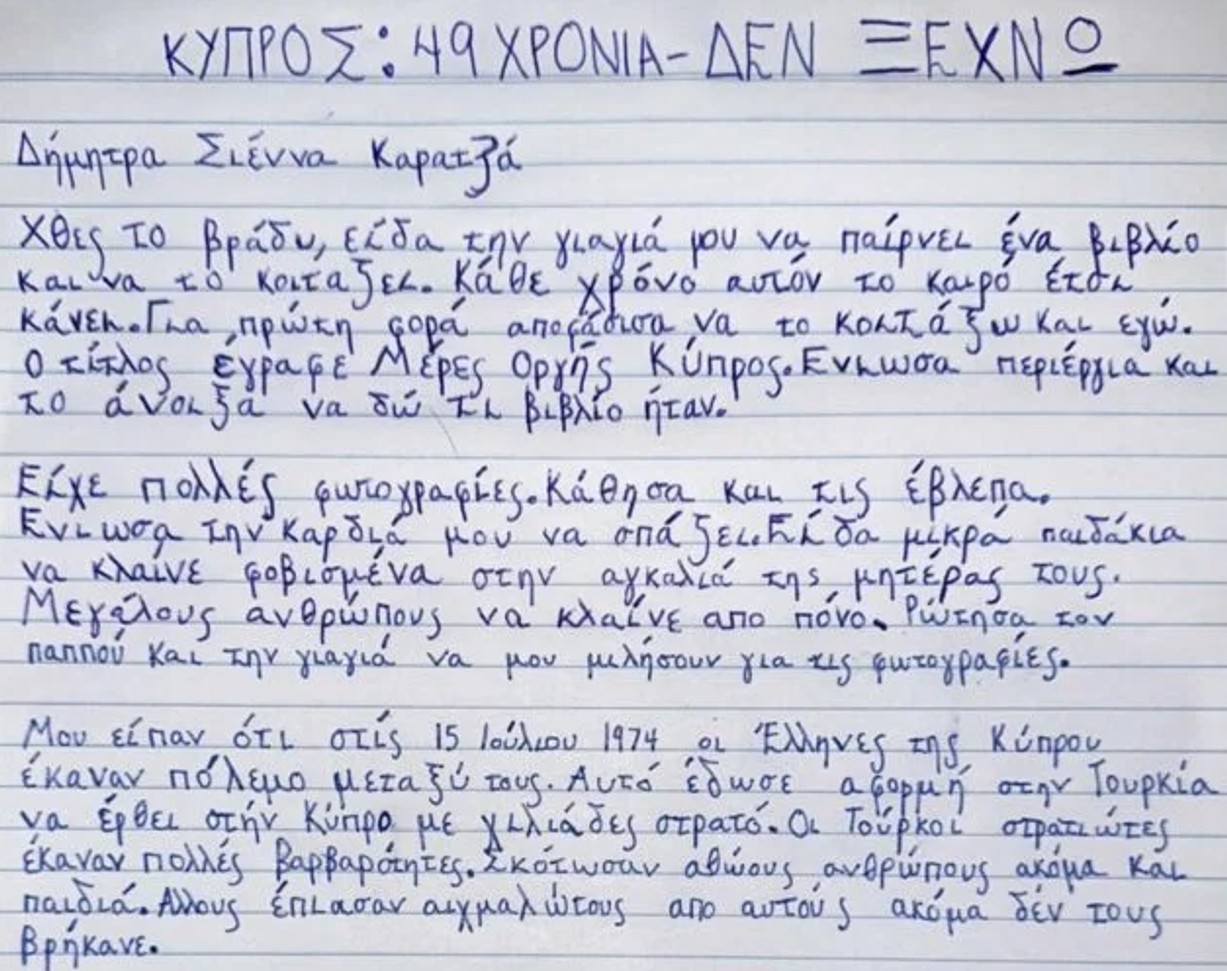 ΚΥΠΡΟΣ: 49 ΧΡΟΝΙΑ- ΔΕΝ ΞΕΧΝΩ
Δήμητρα Σιέννα Καρατζά
Χθες το βράδυ, είδα την γιαγιά μου να παίρνει ένα βιβλίο
και να το κοιταζει. Κάθε χρόνο αυτόν το καιρό έτσι
κάνει. Για πρώτη φορά αποφάσισα να το κοιτάξω και εγώ.
Ο τίτλος έγραφε Μέρες Οργής Κύπρος. Ενιωσα περιέργια και
το άνοιξα να δώ τι βιβλίο ήταν.
Είχε πολλές φωτογραφίες. Κάθησα και τις έβλεπα.
Ενιωσα την καρδιά μου να σπάζει. Είδα μικρά παιδάκια
να κλαίνε φοβισμένα στην αγκαλιά της μητέρας τους.
Μεγάλους ανθρώπους να κλαίνε απο πόνο. Ρώτησα τον
παππού και την γιαγιά να μου μιλήσουν για τις φωτογραφίες.
Μου είπαν ότι στίς 15 Ιούλιου 1974 οι Έλληνες της Κύπρου
έκαναν πόλεμο μεταξύ τους. Αυτό έδωσε αφορμή στην Τουρκία
να έρθει στήν Κύπρο με χιλιάδες στρατό. Οι Τούρκοι στρατιώτες
έκαναν πολλές βαρβαρότητες. Σκότωσαν αθώους ανθρώπους ακόμα και
παιδιά. Αλλους έπιασαν αιχμαλώτους απο αυτούς ακόμα δέν τους
βρήκανε.